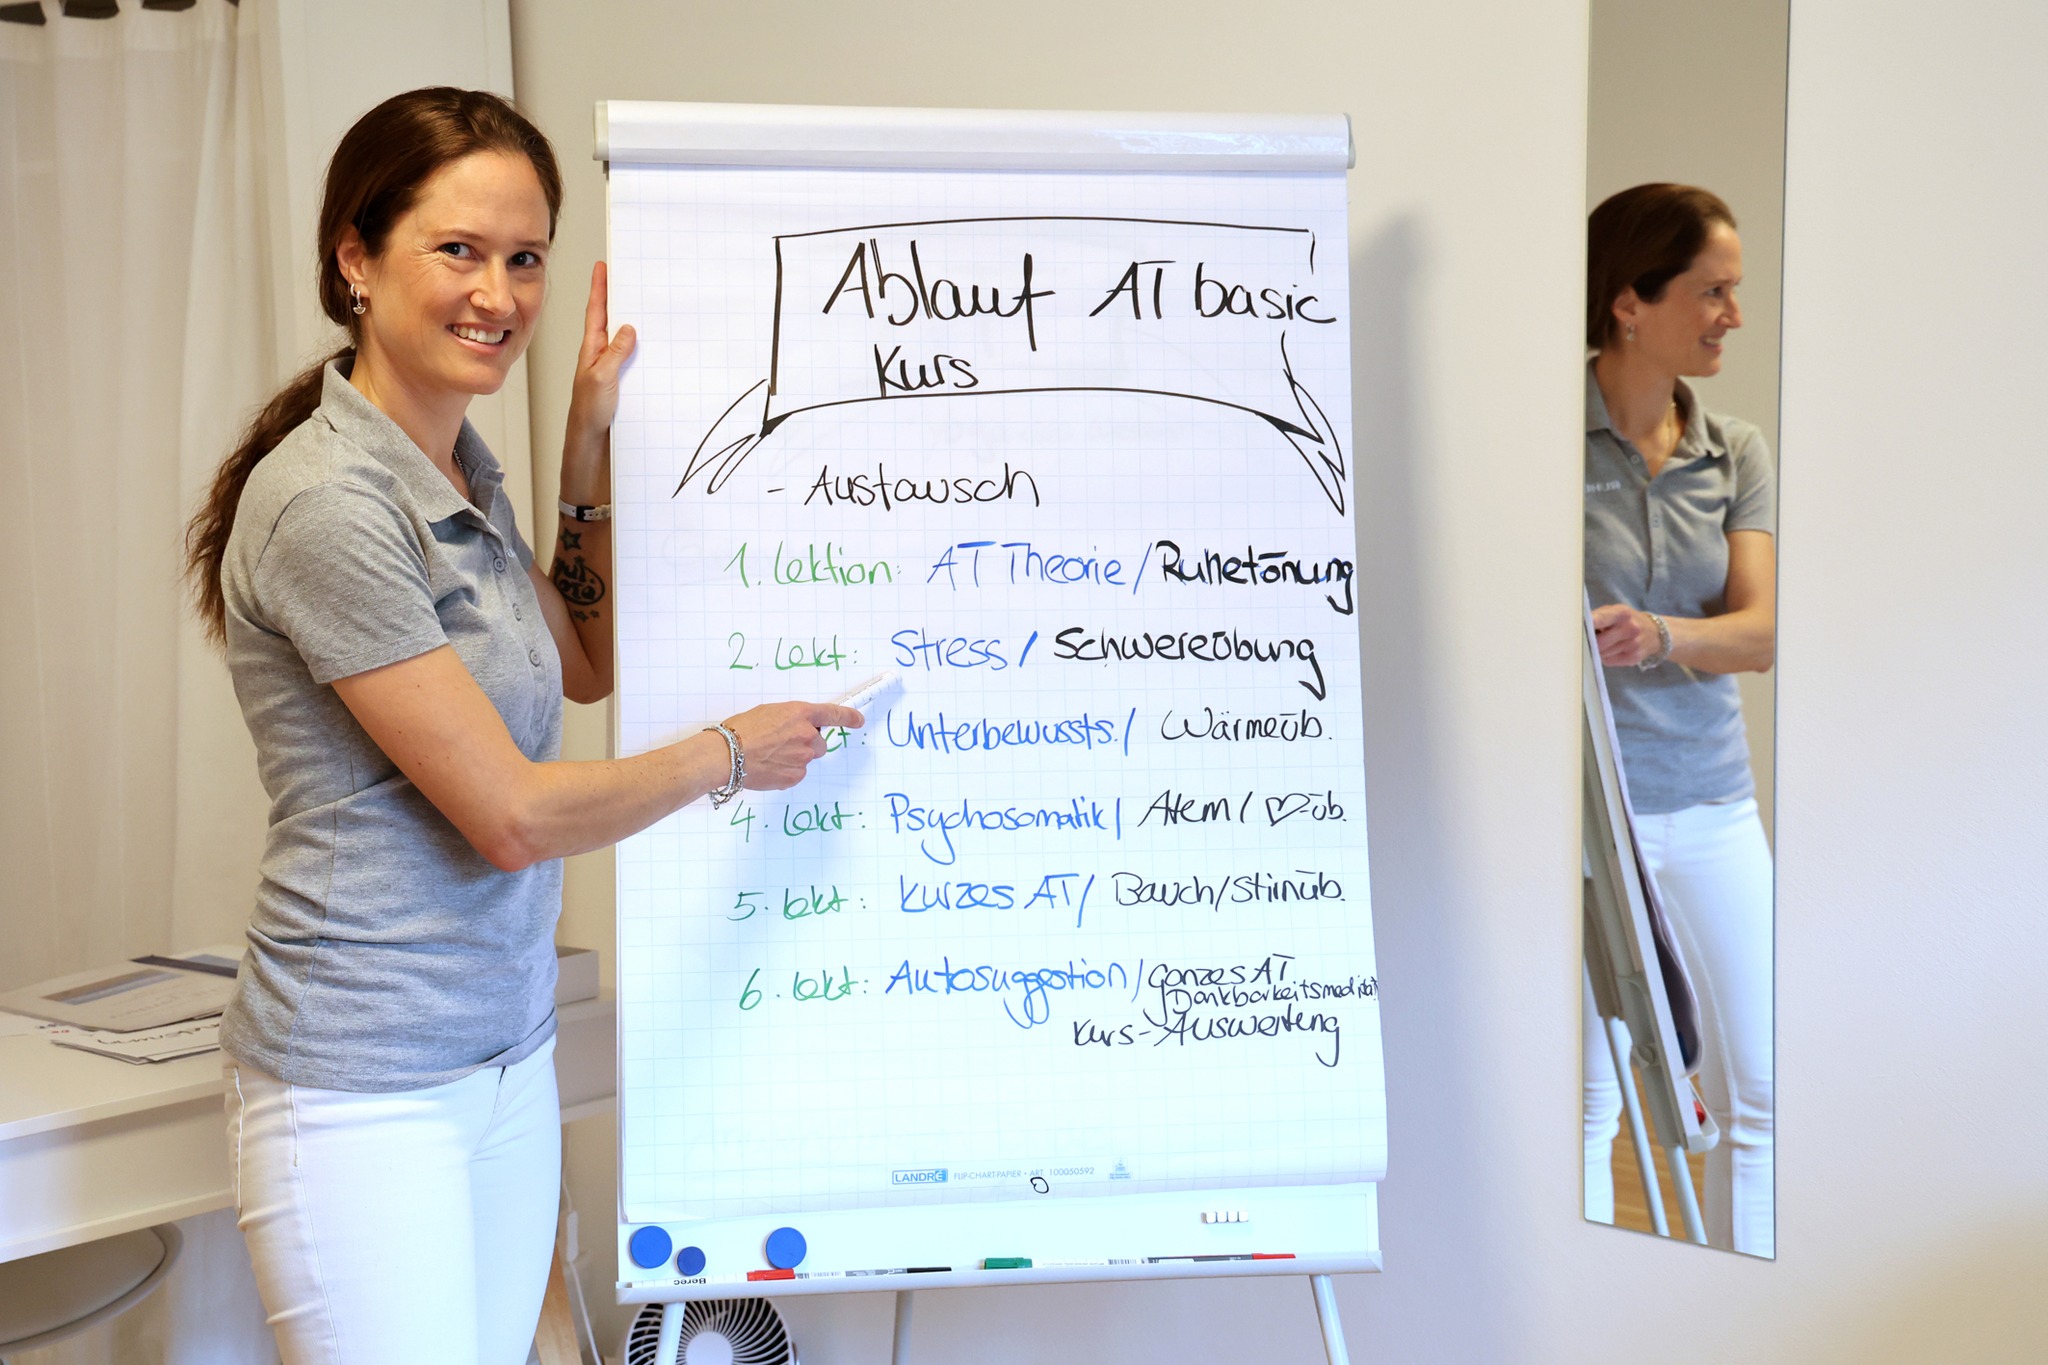 Ablauf AT basic
Kurs
- Austausch
1. Lektion: AT Theorie / Ruhetönung
2. Lekt: Stress / Schwereübung
kt: Unterbewussts. / Wärmeüb.
4. Lekt: Psychosomatik / Atem / ♡-üb.
5. Lekt: Kurzes AT / Bauch/Stirnüb.
6. Lekt: Autosuggestion / ganzes AT
Dankbarkeitsmeditat
Kurs-Auswertung
LANDRÉ FLIP-CHART-PAPIER • ART. 100050592
Berec